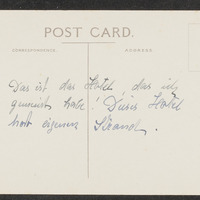 POST CARD.
CORRESPONDENCE. ADDRESS.
Das ist das Hotel, das ich
gemeint habe! Dieses Hotel
hat eigenen Strand.